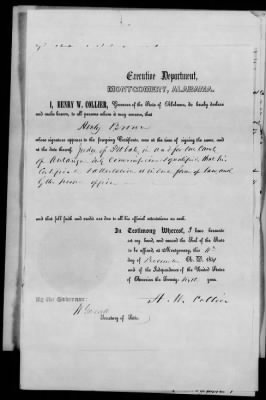 Executive Department,
MONTGOMERY, ALABAMA.
I, HENRY W. COLLIER, Governor of the State of Alabama, do hereby declare
and make known, to all persons whom it may concern, that
Henly Brown
whose signature appears to the foregoing Certificate, was at the time of signing the same, and
at the date thereof Judge of Probate in and for the County
of Autauga duly Commissioned & qualified, that his
Certificate & attestation is in due form of law and
by the proper officer
and that full faith and credit are due to all his official attestations as such.
In Testimony Whereof, I have hereunto
set my hand, and caused the Seal of the State
to be affixed, at Montgomery, this
day of December A. D. 18
and of the Independence of the United States
of America the Seventy-
By the Governor:
H. W. Collier
Secretary of State.